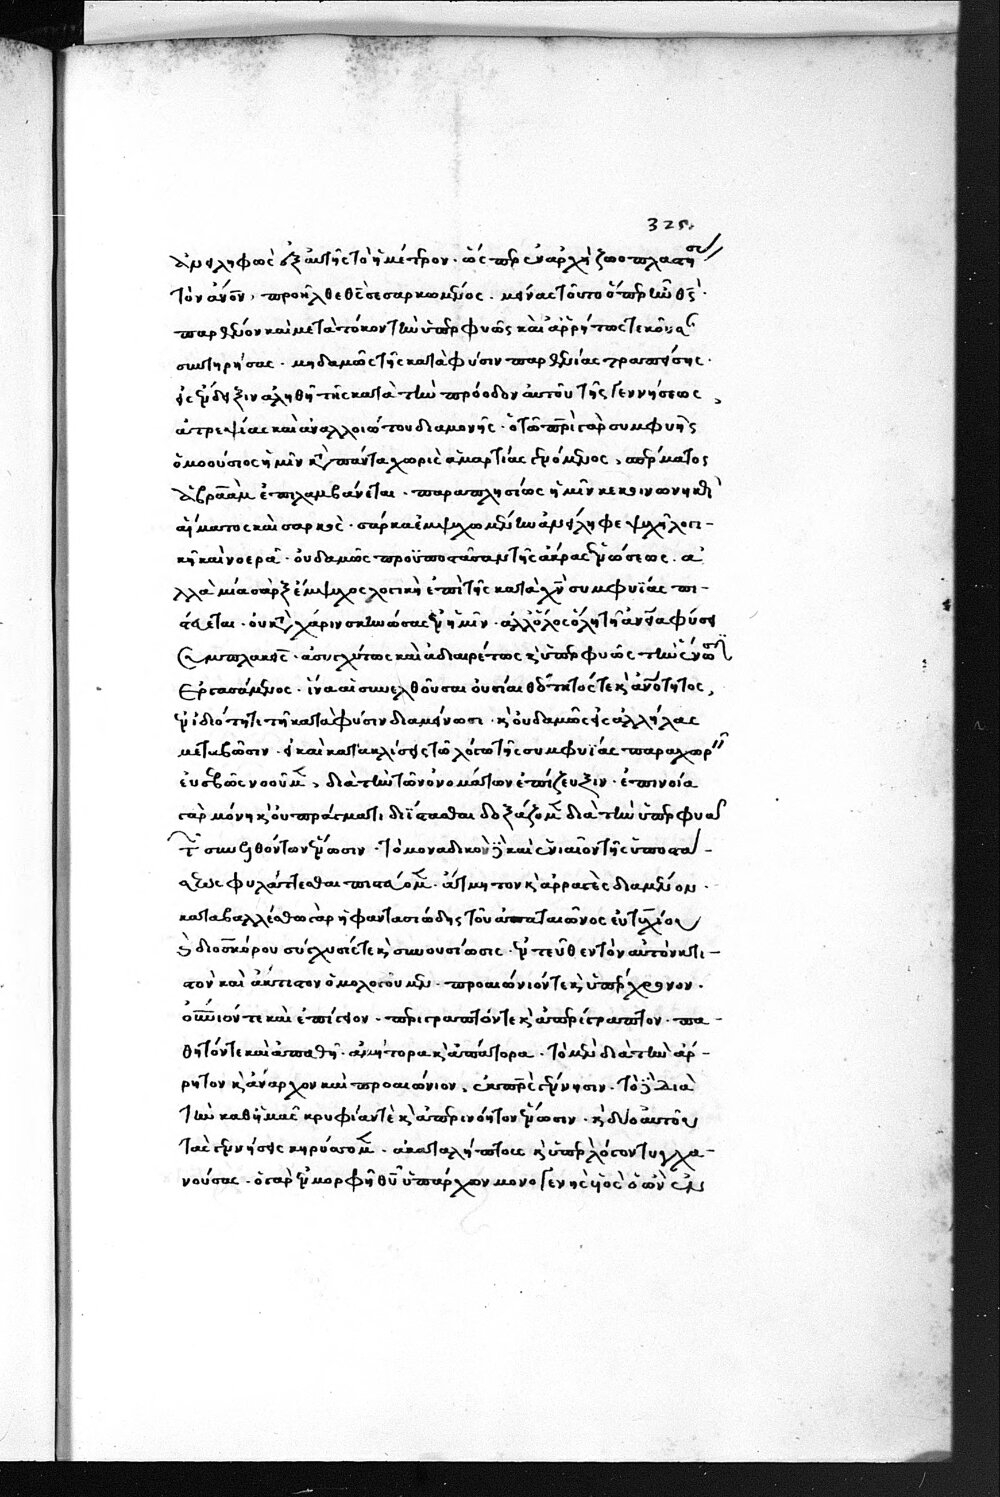 325.
ἀνειληφὼς ἐξ αὐτῆς τὸ ἡμέτερον. ὥς περ ἐν ἀρχῇ ζωοπλαστήσ
τὸν ἄνον, προῆλθε θς σεσαρκωμένος. μείνας τοῦτο ὅπερ ἦν θς.
παρθένον καὶ μετὰ τόκον τὴν ὑπερφυῶς καὶ ἀρρήτως τεκοῦσα
συντηρήσας. μηδαμῶς τῆς κατὰ φύσιν παρθενίας τραπείσης.
εἰς ἔνδειξιν ἀληθῆ τῆς κατὰ τὴν πρόοδον αὐτοῦ τῆς γεννήσεως,
ἀτρεψίας καὶ ἀναλλοιώτου διαμονῆς. ὁ τῶ πρὶ γὰρ συμφυὴς
ὁμοούσιος ἡμῖν κατὰ πάντα χωρὶς ἁμαρτίας γενόμενος, σπέρματος
ἀβραὰμ ἐπιλαμβάνεται. παραπλησίως ἡμῖν κεκοινωνηκὼ
αἵματος καὶ σαρκὸς. σάρκα ἐμψυχωμένην ἀνείληφε ψυχῆ λογι-
κῆ καὶ νοερᾶ. οὐδαμῶς προϋποστᾶσαν τῆς ἄκρας ἑνώσεως. ἀ
λλὰ μία σὰρξ ἔμψυχος λογικὴ ἐπὶ τῆς κατὰ χν συμφυΐας πι-
στεύεται. οὐ κατὰ χάριν σκηνώσας ἐν ἡμῖν. ἀλλ' ὅλος ὅλη τῆ ἀνεία φύσει
συμπλακεὶς. ἀσυγχύτως καὶ ἀδιαιρέτως κ ὑπερφυῶς τὴν ἕνωσιν
ἐργασάμενος. ἵνα αἱ συνελθοῦσαι οὐσίαι θεότητός τε κ ἀνότητος,
ἐν ἰδιότητι τῆ κατὰ φύσιν διαμείνωσι. κ οὐδαμῶς εἰς ἀλλήλας
μεταβῶσιν. εἰ καὶ κατακλίσεις τῶ λόγω τῆς συμφυΐας παραχωρ
εὐσεβῶς νοοῦμ, διὰ τὴν τῶν ὀνομάτων ἐπίζευξιν. ἐπινοία
γὰρ μόνη κ οὐ πράγματι διΐστασθαι δοξάζομ διὰ τὴν ὑπερφυᾶ
τ συνελθόντων ἕνωσιν. τὸ μοναδικὸν δὲ καὶ ἑνιαῖον τῆς ὑποστα-
σεως φυλάττεσθαι πιστεύομ. ἄτμητον κ ἀρραγὲς διαμένον.
καταβαλλέσθω γὰρ ἡ φαντασιώδης τοῦ ἀπαταιῶνος εὐτυχίου
κ διοσκόρου σύγχυσίς τε κ συνουσίωσις. ἐντεῦθεν τὸν αὐτὸν κτι-
στὸν καὶ ἄκτιστον ὁμολογοῦμεν. προαιώνιόν τε κ ὑπόχρονον.
οὐνιόν τε καὶ ἐπίγειον. περιγραπτόν τε κ ἀπερίγραπτον. πα-
θητόν τε καὶ ἀπαθῆ. ἀμήτορα κ ἀπάτορα. τὸ μὲν διὰ τὴν ἄρ-
ρητον κ ἄναρχον καὶ προαιώνιον, ἐκ πρς γέννησιν. τὸ δὲ διὰ
τὴν καθ' ἡμᾶς κρυφίαν τὲ κ ἀπερινόητον ἕνωσιν. κ δύο αὐτοῦ
τὰς γεννήσεις κηρύττομ. ἀκαταλήπτους κ ὑπὲρ λόγον τυγχα-
νούσας. ὁ γὰρ ἐν μορφῆ θυ ὑπάρχων μονογενὴς υἱὸς ὁ ὢν ἐν